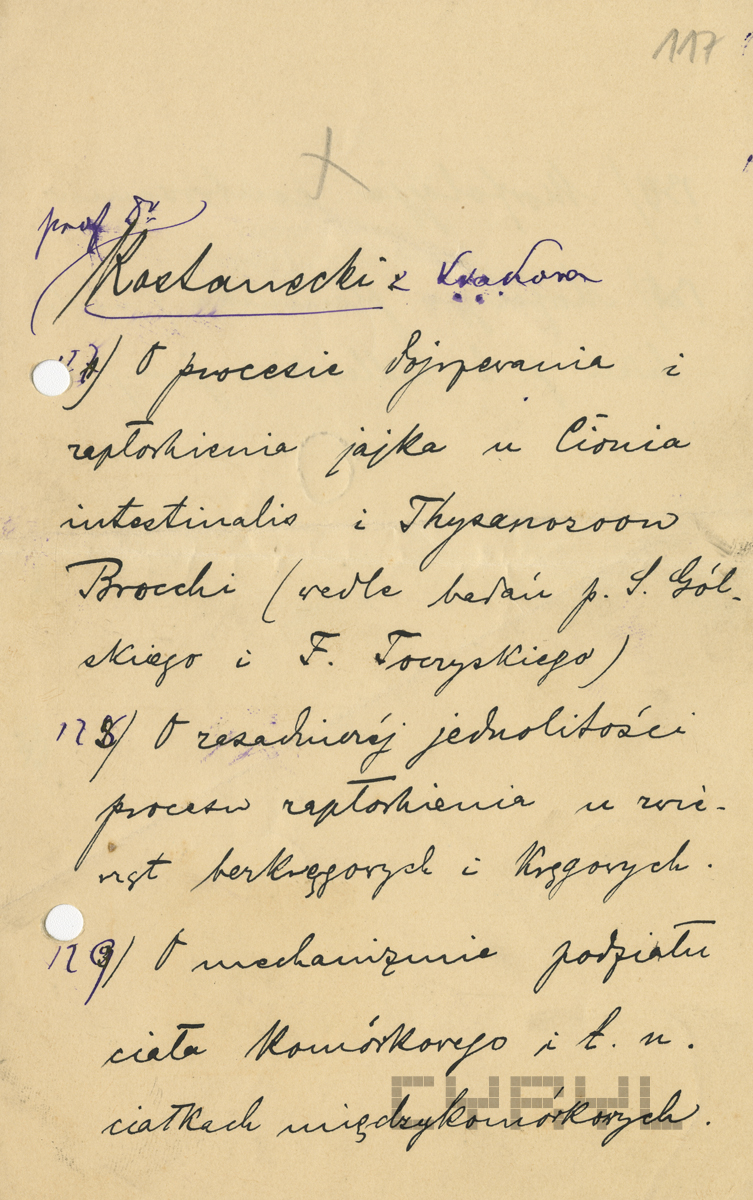 117
prof Dr
Kostanecki z Krakowa
O procesie dojrzewania i
zapłodnienia jajka u Cionia
intestinalis i Thysanozoon
Brocchi (wedle badań p. S. Gól-
skiego i F. Toczyskiego)
128) O zasadniczéj jednolitości
procesu zapłodnienia u zwie-
rząt bezkręgowych i kręgowych.
129) O mechanizmie podziału
ciała komórkowego i t. n.
ciałkach międzykomórkowych.
CYRYL